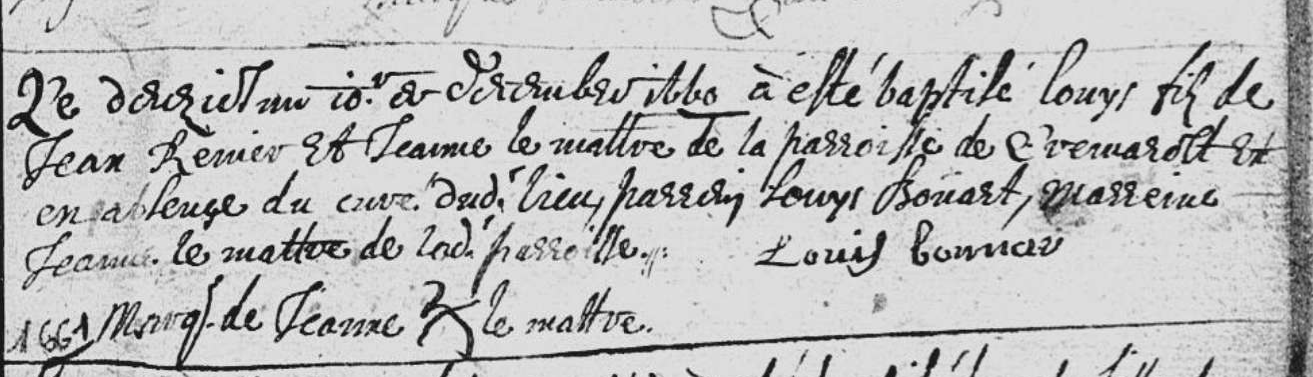 Le dixiesme 10.e de decembre 1660 à esté baptisé Louys filz de
Jean Renier Et Jeanne le mattre de la parroisse de Et
en absençe du curé dud. lieu, parrein Louys Bonart, marreine
Jeanne le mattre de lad. parroisse. Louis bonnar
1661 Marq. de Jeanne le mattre.